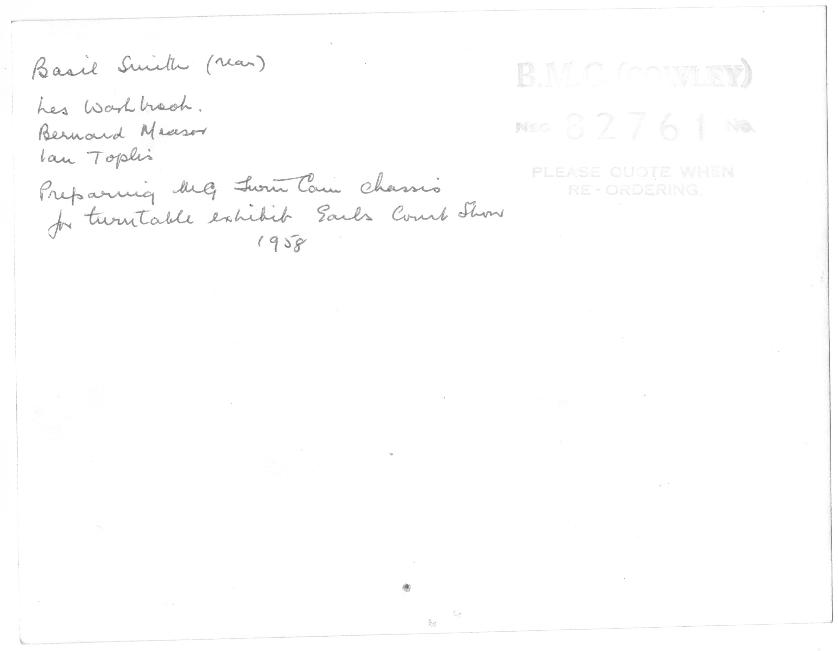 Basil Smith (rear)
Les Washbrook.
Bernard Measor
Ian Toplis
Preparing MG Twin Cam chassis
for turntable exhibit Earls Court Show
1958
B.M.C. (COWLEY)
NEG 82761 No.
PLEASE QUOTE WHEN
RE-ORDERING.